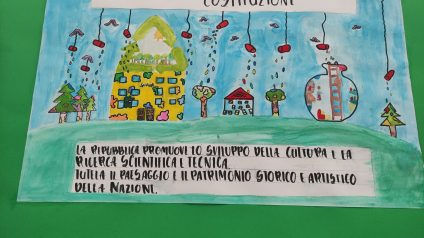 COSTITUZIONE
LA REPUBBLICA PROMUOVE LO SVILUPPO DELLA CULTURA E LA
RICERCA SCIENTIFICA E TECNICA.
TUTELA IL PAESAGGIO E IL PATRIMONIO STORICO E ARTISTICO
DELLA NAZIONE.